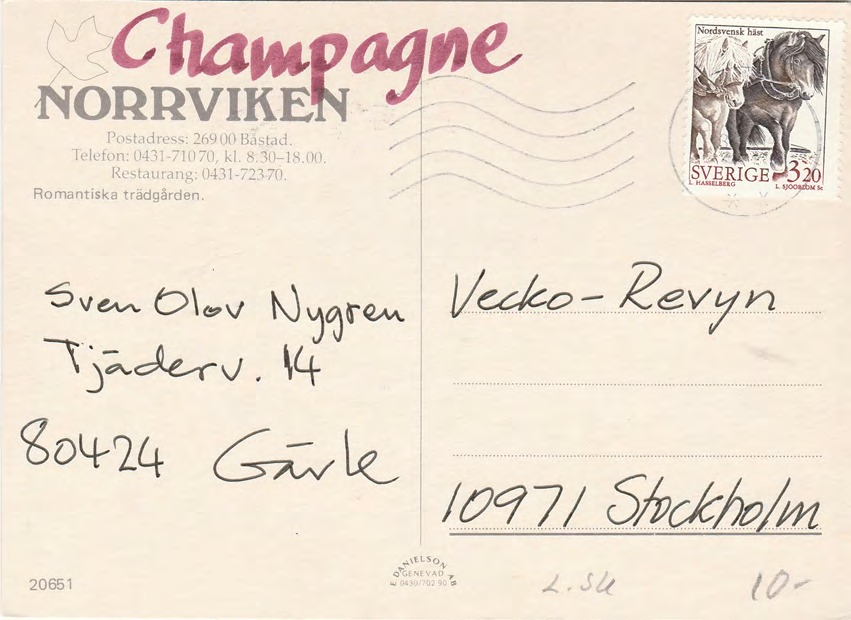 Champagne
NORRVIKEN
Postadress: 269 00 Båstad.
Telefon: 0431-710 70, kl. 8.30–18.00.
Restaurang: 0431-723 70.
Romantiska trädgården.
Nordsvensk häst
SVERIGE 3.20
L. HASSELBERG L. SJÖÖBLOM Sc
Sven Olov Nygren
Tjäderv. 14
80424 Gävle
Vecko-Revyn
10971 Stockholm
20651
E. DANIELSON AB
GENEVAD
0430/702 90
10-